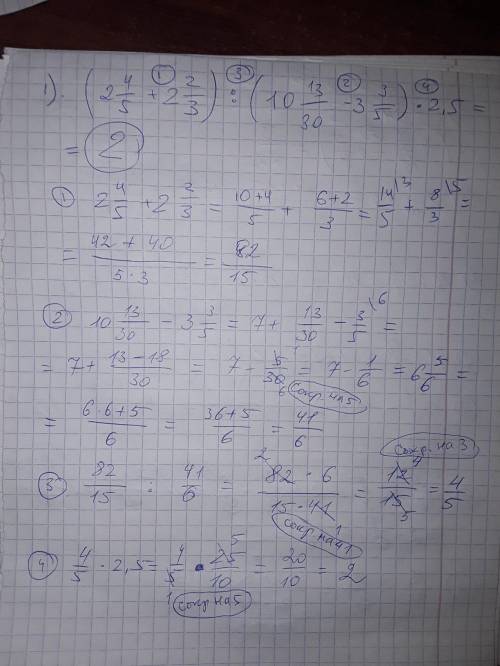 1). (2 4/5 + 2 2/3) : (10 13/30 - 3 3/5) · 2,5 =
= 2
① 2 4/5 + 2 2/3 = (10+4)/5 + (6+2)/3 = 14/5 \3 + 8/3 \5 =
= (42 + 40)/(5·3) = 82/15
② 10 13/30 - 3 3/5 = 7 + 13/30 - 3/5 \6 =
= 7 + (13-18)/30 = 7 - 5/30 = 7 - 1/6 = 6 5/6 =
сокр. на 5
= (6·6+5)/6 = (36+5)/6 = 41/6
сокр. на 3
3) 82/15 : 41/6 = (82·6)/(15·41) = 12/15 = 4/5
сокр на 41
④ 4/5 · 2,5 = 4/5 · 25/10 = 20/10 = 2
сокр на 5